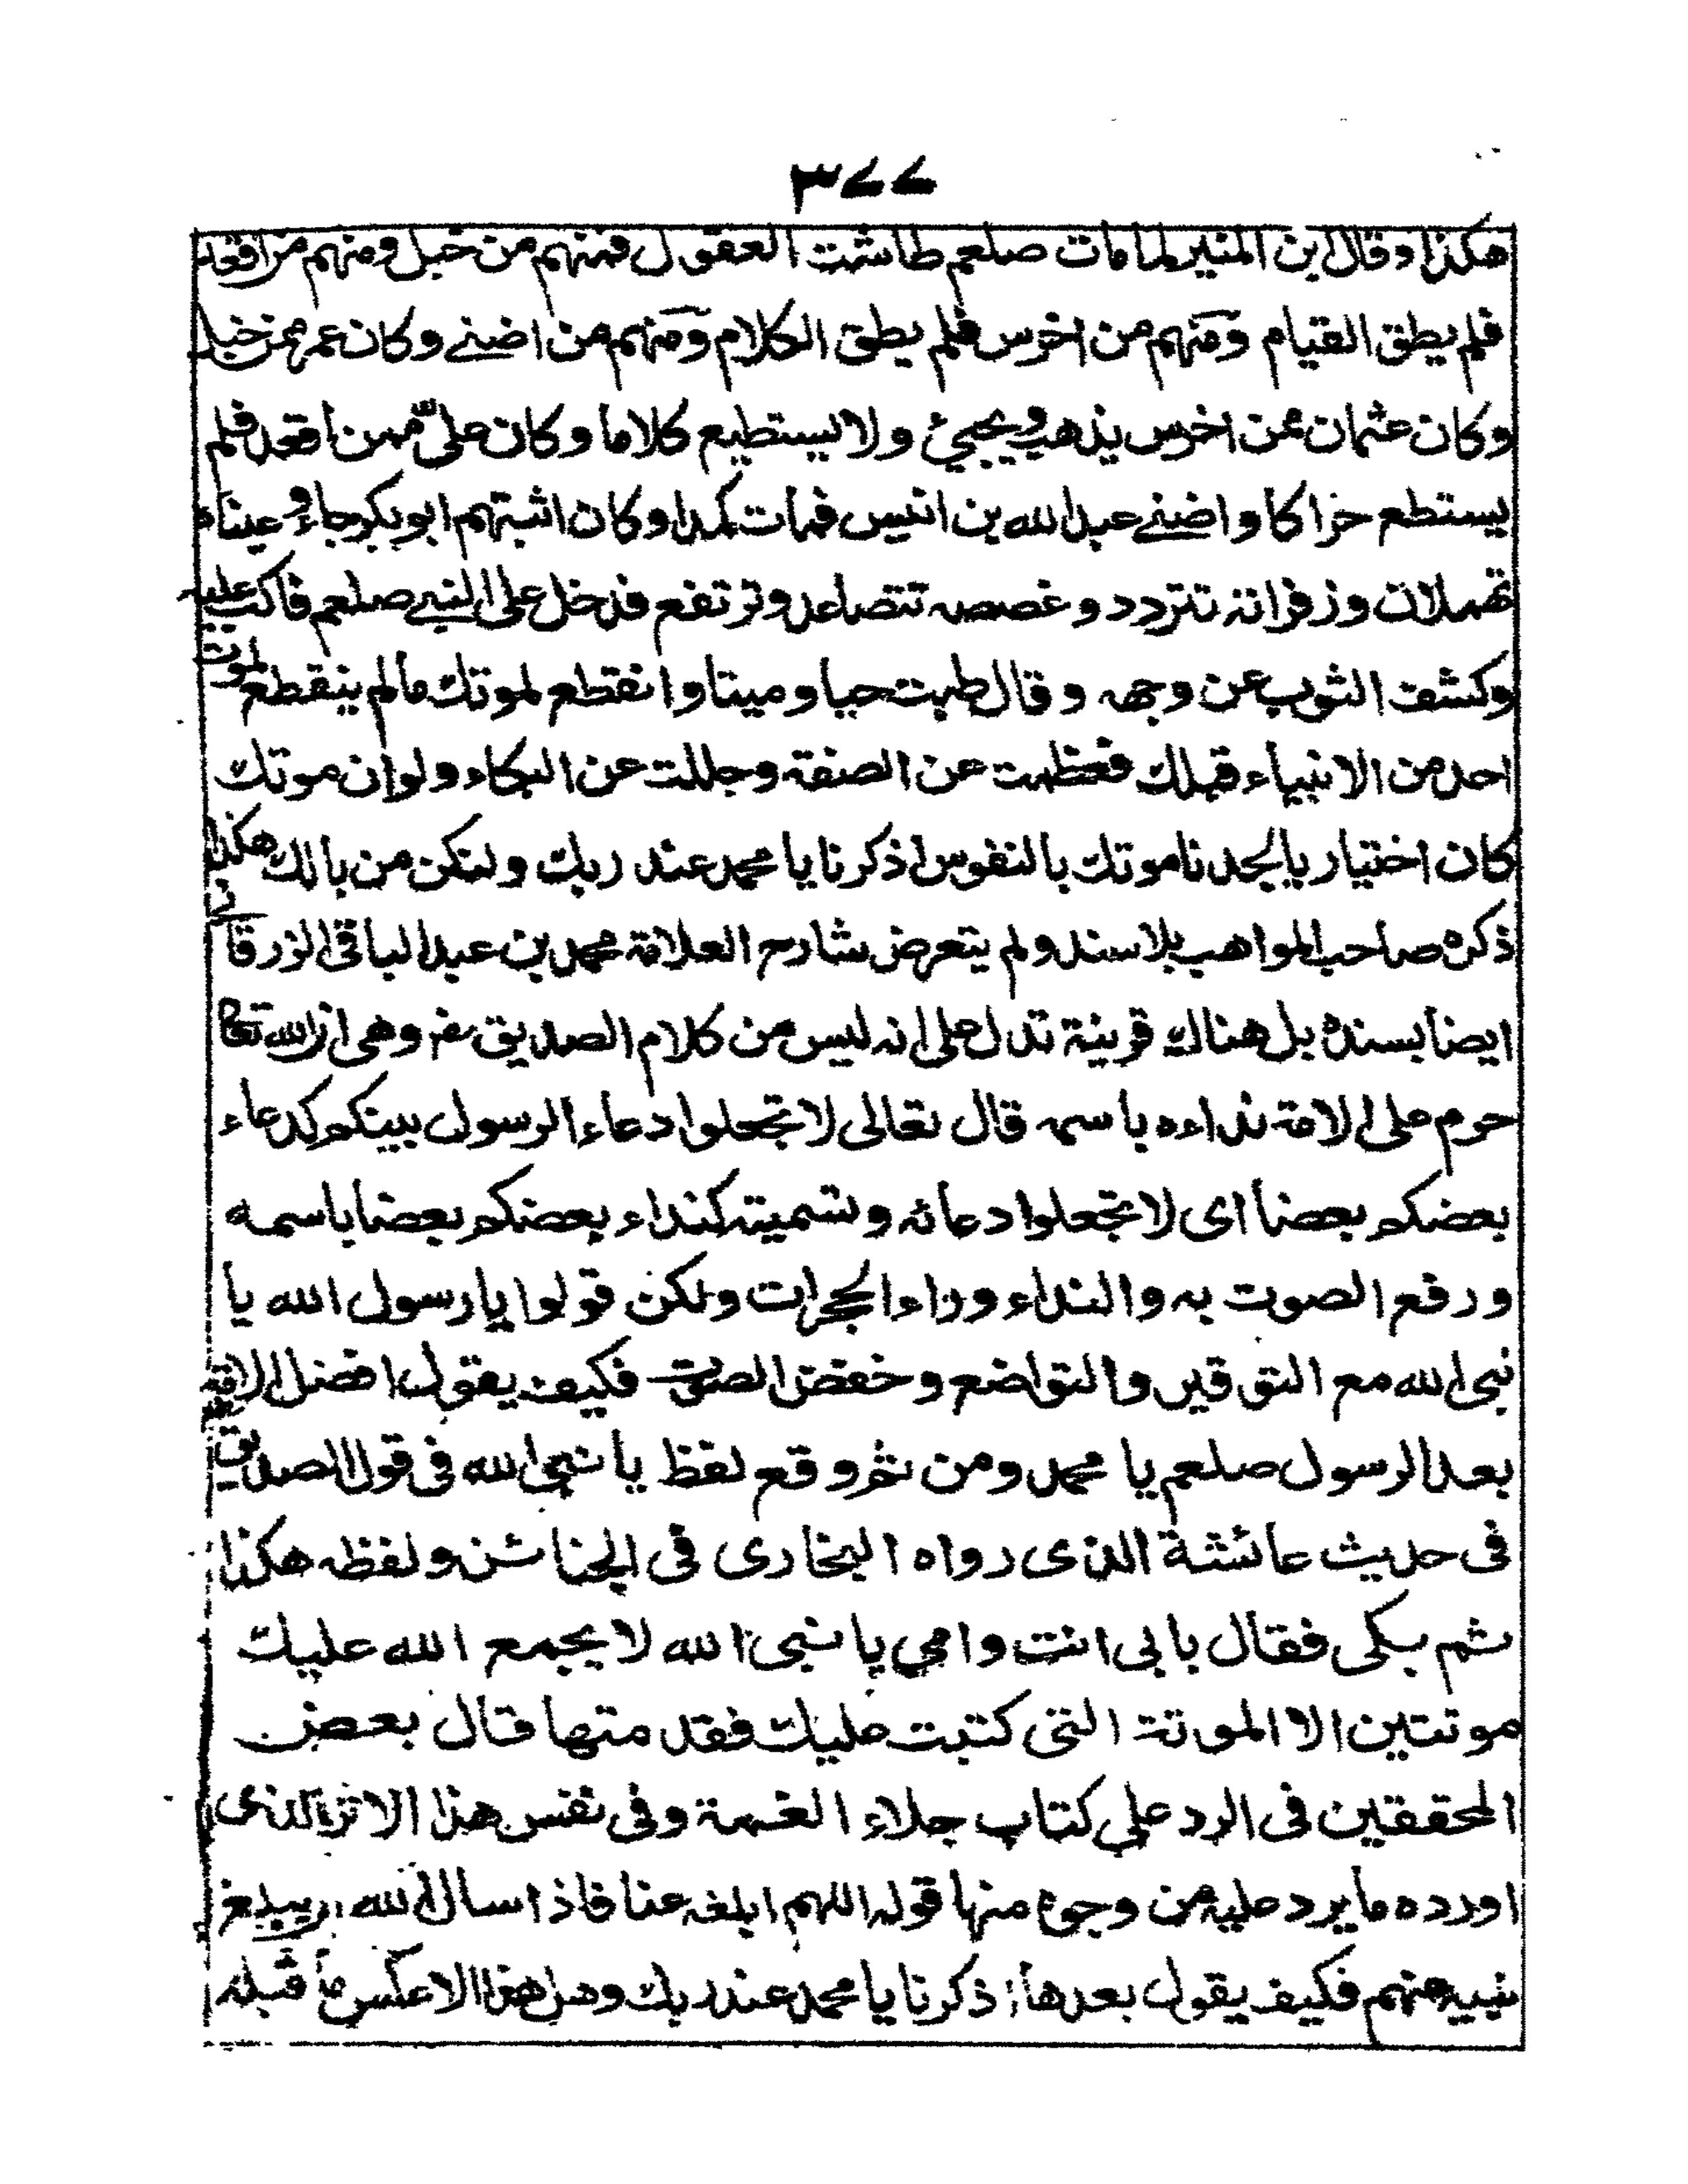 ٣٧٧
هكذا وقال ابن المنير لما مات صلعم طاشت العقول فمنهم من خبل ومنهم من اقعد
فلم يطق القيام ومنهم من اخرس فلم يطق الكلام ومنهم من اضنے وكان عمر ممن خبل
وكان عثمان ممن اخرس يذهب ويجيئ ولا يستطيع كلاما وكان علىّ ممن اقعد فلم
يستطع حراكا واضنے عبد الله بن انيس فمات كمدا وكان اثبتهم ابو بكر جاء وعيناه
تهملان وزفراته تتردد وغصصه تتصاعد وترتفع فدخل على النبے صلعم فاكب عليه
وكشف الثوب عن وجهه وقال طبت حيا وميتا وانقطع لموتك ما لم ينقطع لموت
احد من الانبياء قبلك فعظمت عن الصفة وجللت عن البكاء ولو ان موتك
كان اختيار يا لجدنا موتك بالنفوس اذكرنا يا محمد عند ربك ولنكن من بالك هكذا
ذكره صاحب المواهب بلا سند ولم يتعرض شارحه العلامة محمد بن عبد الباقى الزرقانے
ايضا بسنده بل هناك قرينة تدل على انه ليس من كلام الصديق رض وهى ان الله تعالى
حرم على الامة نداءه باسمه قال تعالى لا تجعلوا دعاء الرسول بينكم كدعاء
بعضكم بعضا اى لا تجعلوا دعائه وتسميته كنداء بعضكم بعضا باسمه
ورفع الصوت به والنداء وراء الحجرات ولكن قولوا يا رسول الله يا
نبى الله مع التوقير والتواضع وخفض الصوت فكيف يقول افضل الامة
بعد الرسول صلعم يا محمد ومن ثم وقع لفظ يا نبى الله فى قول الصديق
فى حديث عائشة الذى رواه البخارى فى الجنائز ولفظه هكذا
ثم بكى فقال بابى انت وامي يا نبى الله لا يجمع الله عليك
موتتين الا الموتة التى كتبت عليك فقد متها قال بعض
المحققين فى الرد على كتاب جلاء الغمة وفى نفس هذا الاثر الذى
اورده ما يرد عليه من وجوه منها قوله اللهم ابلغه عنا فاذا سال الله ان يبلغ
نبيه عنهم فكيف يقول بعدها اذكرنا يا محمد عند ربك وهل هذا الا عكس ما قبله